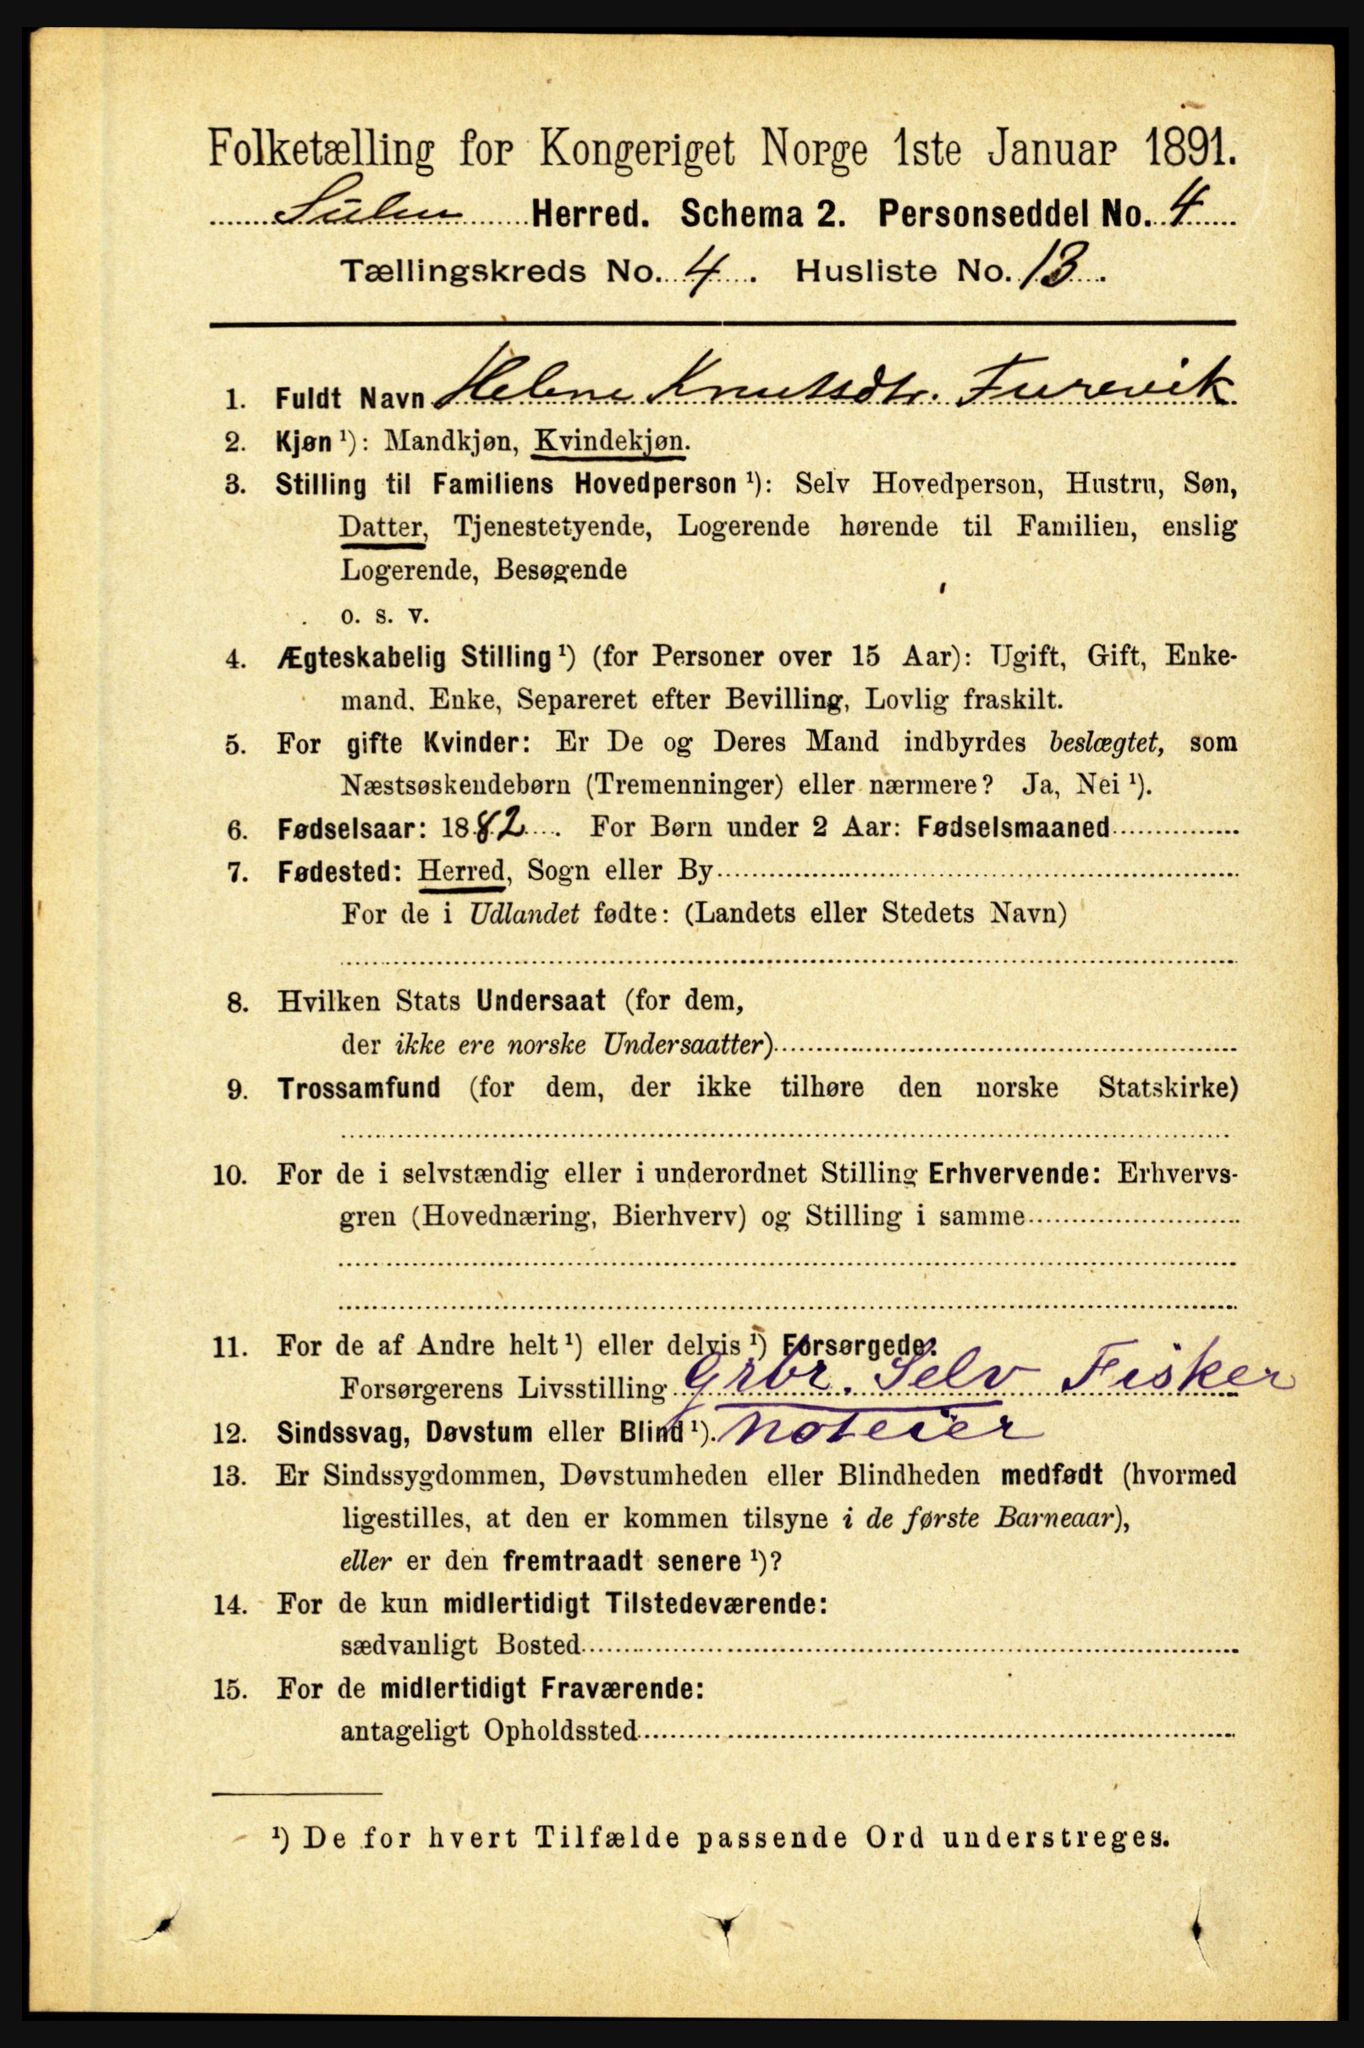 Folketælling for Kongeriget Norge 1ste Januar 1891.
Sulen Herred. Schema 2. Personseddel No. 4
Tællingskreds No. 4. Husliste No. 13.
1. Fuldt Navn Helene Knutsdtr. Furevik
2. Kjøn ¹): Mandkjøn, Kvindekjøn.
3. Stilling til Familiens Hovedperson ¹): Selv Hovedperson, Hustru, Søn,
Datter, Tjenestetyende, Logerende hørende til Familien, enslig
Logerende, Besøgende
o. s. v.
4. Ægteskabelig Stilling ¹) (for Personer over 15 Aar): Ugift, Gift, Enke-
mand, Enke, Separeret efter Bevilling, Lovlig fraskilt.
5. For gifte Kvinder: Er De og Deres Mand indbyrdes beslægtet, som
Næstsøskendebørn (Tremenninger) eller nærmere? Ja, Nei ¹).
6. Fødselsaar: 1882. For Børn under 2 Aar: Fødselsmaaned
7. Fødested: Herred, Sogn eller By
For de i Udlandet fødte: (Landets eller Stedets Navn)
8. Hvilken Stats Undersaat (for dem,
der ikke ere norske Undersaatter)
9. Trossamfund (for dem, der ikke tilhøre den norske Statskirke)
10. For de i selvstændig eller i underordnet Stilling Erhvervende: Erhvervs-
gren (Hovednæring, Bierhverv) og Stilling i samme
11. For de af Andre helt ¹) eller delvis ¹) Forsørgede:
Forsørgerens Livsstilling Grbr. Selv Fisker
12. Sindssvag, Døvstum eller Blind ¹). Noteier
13. Er Sindssygdommen, Døvstumheden eller Blindheden medfødt (hvormed
ligestilles, at den er kommen tilsyne i de første Barneaar),
eller er den fremtraadt senere ¹)?
14. For de kun midlertidigt Tilstedeværende:
sædvanligt Bosted
15. For de midlertidigt Fraværende:
antageligt Opholdssted
¹) De for hvert Tilfælde passende Ord understreges.